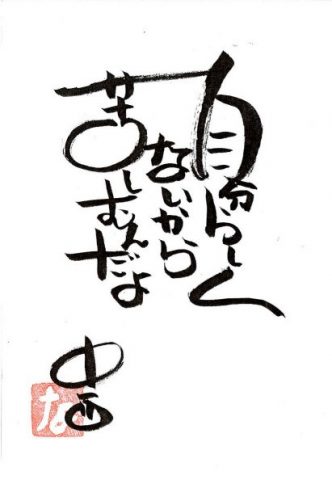 自分らしく
ないから
苦しむんだよ
な